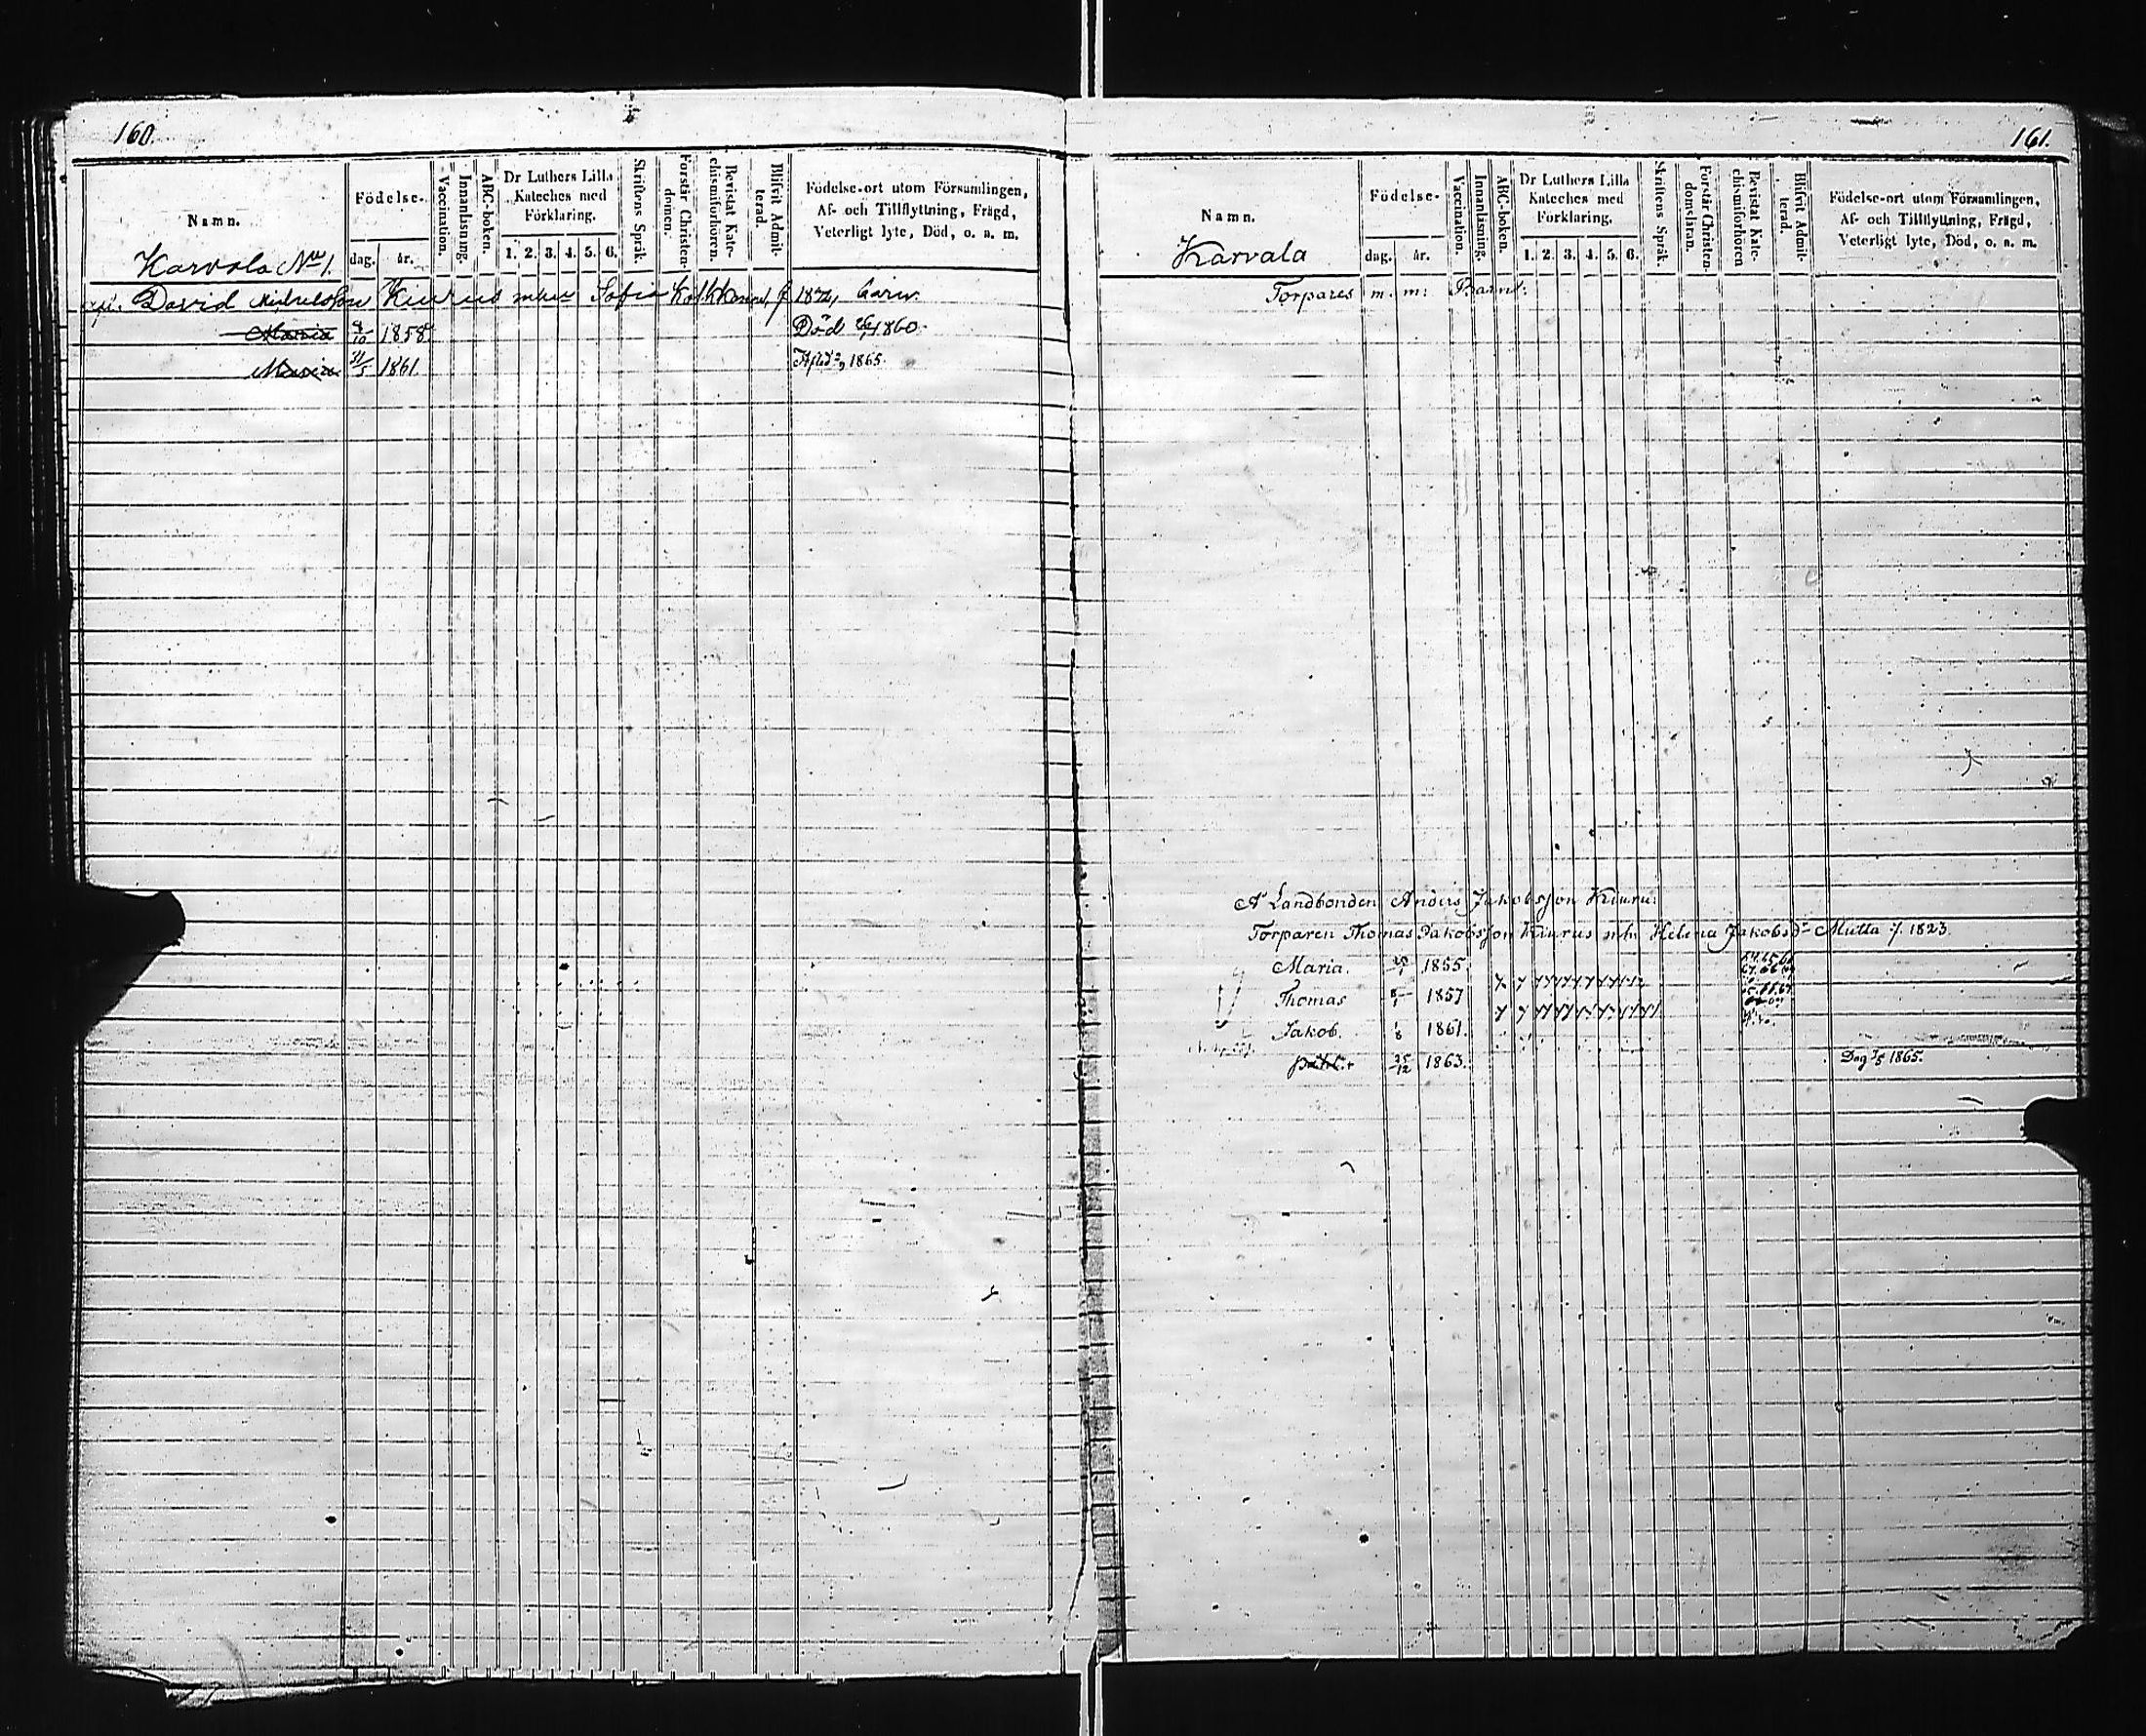 160.
Namn.
Födelse-
dag. år.
Vaccination.
Innanläsning.
ABC-boken.
Dr Luthers Lilla
Kateches med
Förklaring.
1. 2. 3. 4. 5. 6.
Skriftens Språk.
Förstår Christen-
domen.
Bevistat Kate-
chismiförhören.
Blifvit Admit-
terad.
Födelse-ort utom Församlingen,
Af- och Tillflyttning, Frägd,
Veterligt lyte, Död, o. a. m.
Karvala No 1.
David Michelsson Kiurus Sofia
Maria 1858 Död 1860.
Maria 31/5 1861. 1865.
161.
Namn.
Födelse-
dag. år.
Vaccination.
Innanläsning.
ABC-boken.
Dr Luthers Lilla
Kateches med
Förklaring.
1. 2. 3. 4. 5. 6.
Skriftens Språk.
Förstår Christen-
domsläran.
Bevistat Kate-
chismiförhören
Blifvit Admit-
terad.
Födelse-ort utom Församlingen,
Af- och Tillflyttning, Frägd,
Veterligt lyte, Död, o. a. m.
Karvala
Torpares m. m: Barn:
Landbonden Anders Jakobsson Kiurus
Torparen Thomas Jakobsson Kiurus Helena Jakobsdr Mutta 1823.
Maria. 1855.
Thomas 1857
Jakob. 1861.
25/12 1863. 1865.